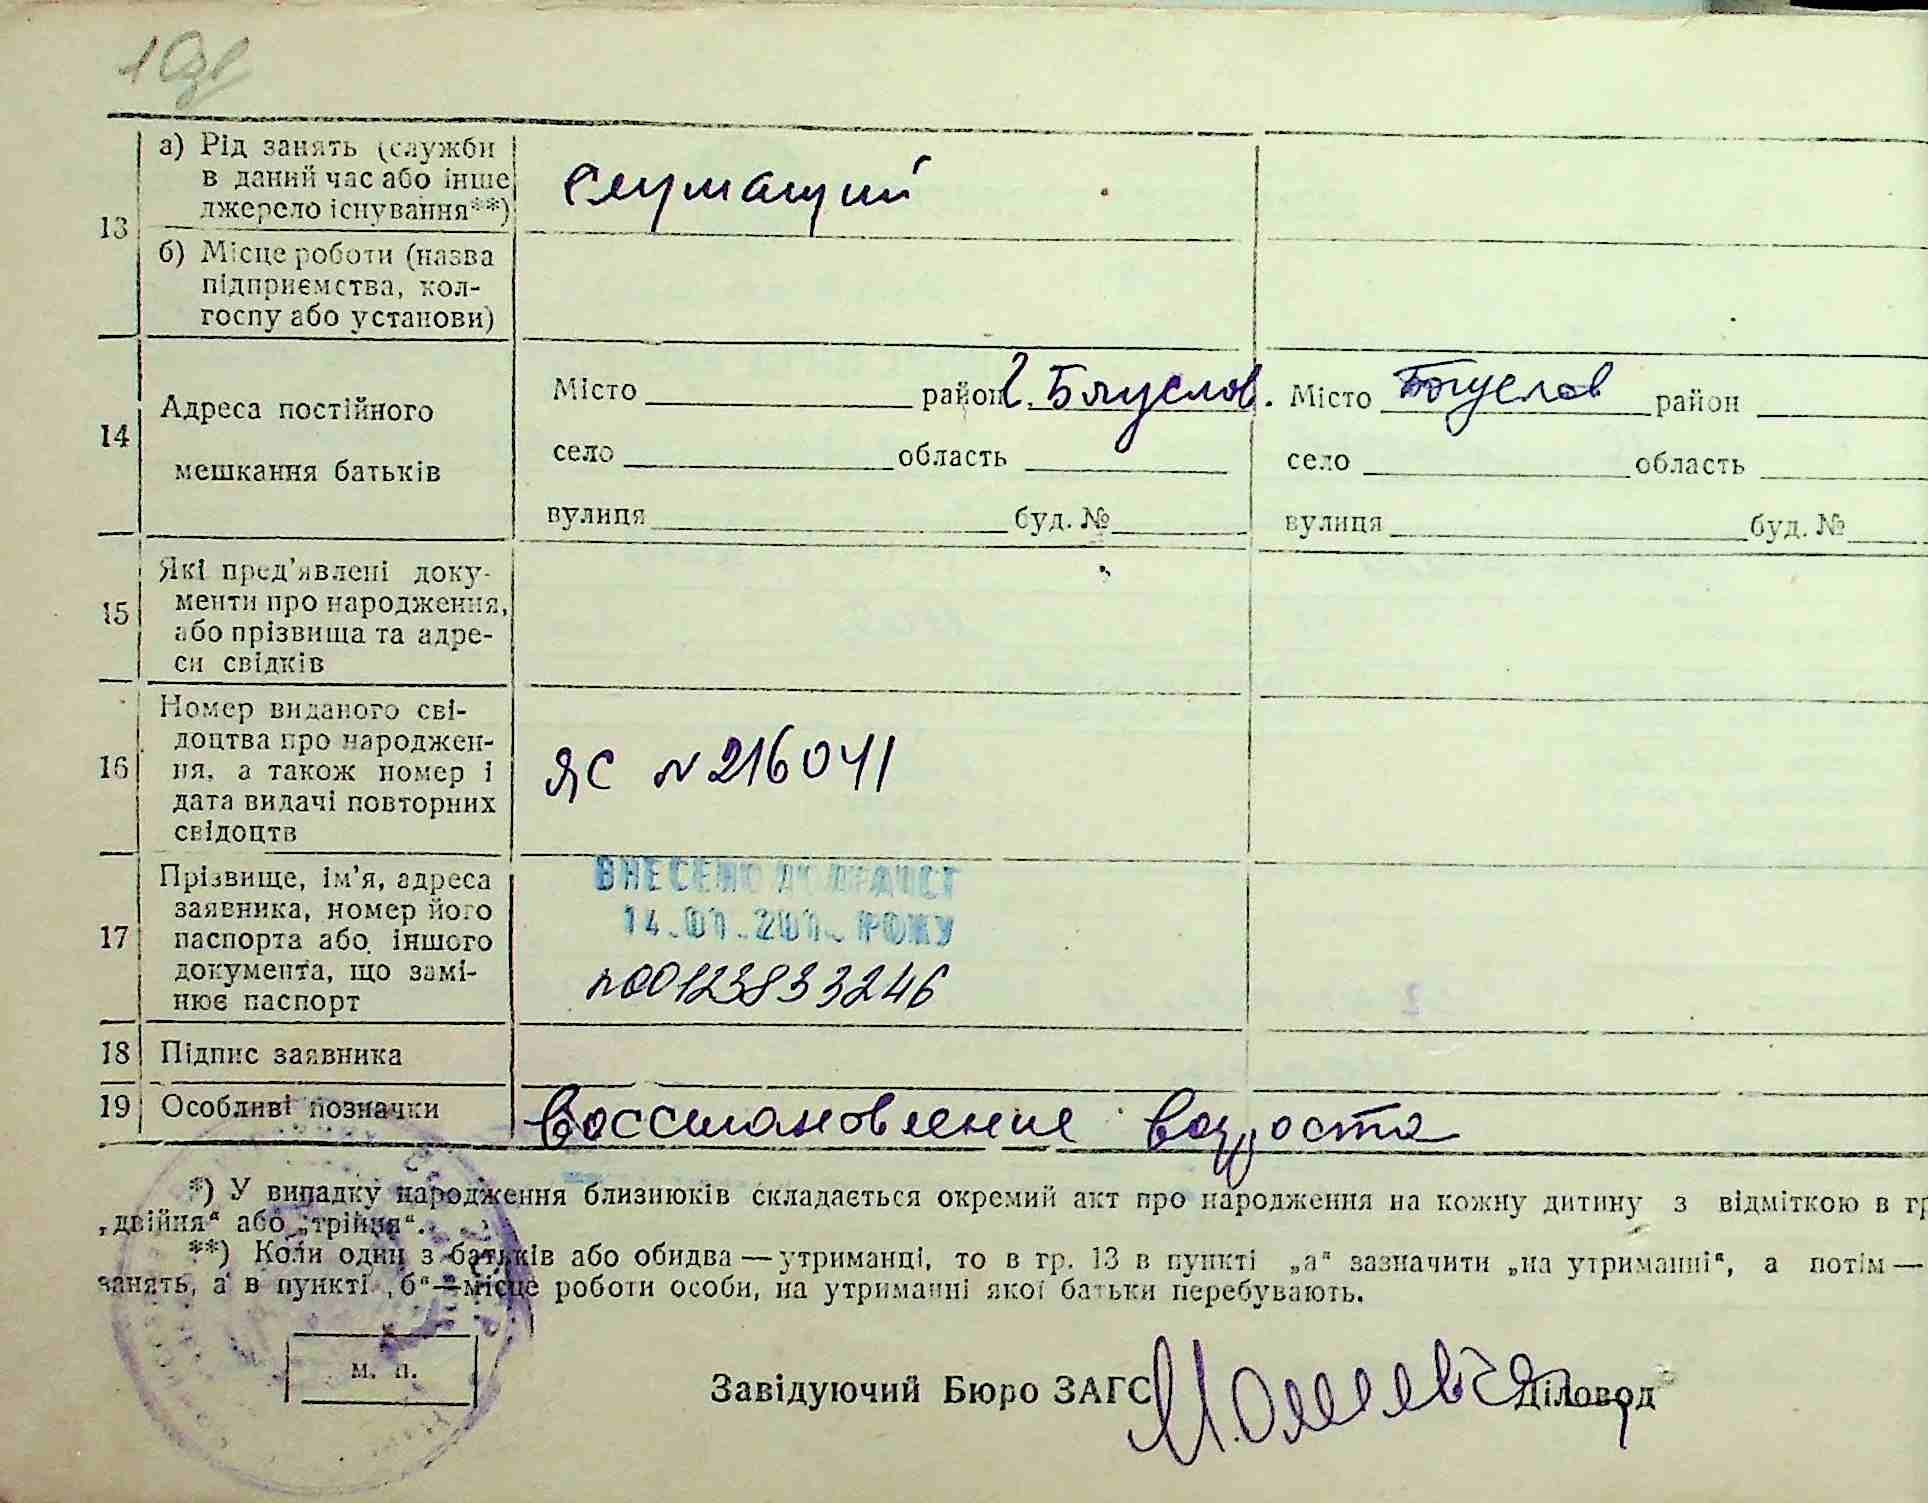 13 а) Рід занять (служби
в даний час або інше
джерело існування**)
служащий
б) Місце роботи (назва
підприємства, кол-
госпу або установи)
14 Адреса постійного
мешкання батьків
Місто район г. Богуслов. Місто Богуслов район
село область село область
вулиця буд. № вулиця буд. №
15 Які пред’явлені доку-
менти про народження,
або прізвища та адре-
си свідків
16 Номер виданого сві-
доцтва про народжен-
ня, а також номер і
дата видачі повторних
свідоцтв
ЯС № 216041
17 Прізвище, ім’я, адреса
заявника, номер його
паспорта або іншого
документа, що замі-
нює паспорт
ВНЕСЕНО ДО ДРАЦСГ
14.01. РОКУ
№00123833246
18 Підпис заявника
19 Особливі позначки
Восстановление возроста
*) У випадку народження близнюків складається окремий акт про народження на кожну дитину з відміткою в гр
„двійня“ або „трійця“.
**) Коли один з батьків або обидва — утриманці, то в гр. 13 в пункті „а“ зазначити „на утриманні“, а потім —
занять, а в пункті „б“ — місце роботи особи, на утриманні якої батьки перебувають.
м. п.
Завідуючий Бюро ЗАГС Діловод